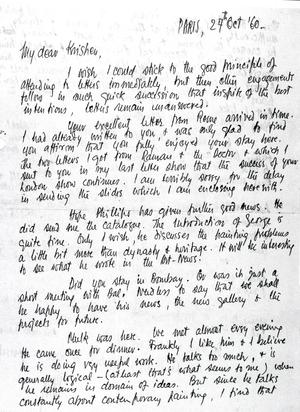 PARIS, 24th Oct '60_
My dear Krishen,
I wish I could stick to the good principle of
attending to letters immediately, but then often engagements
follow in such quick succession that inspite of the best
intentions, letters remain unanswered.
Your excellent letter from Rome arrived in time.
I had already written to you & was only glad to find
you affirm that you fully enjoyed your stay here.
The two letters I got from Raman & the Doctor & which I
sent to you in my last letter show that the success of your
London show continues. I am terribly sorry for the delay
in sending the slides which I am enclosing herewith.
Hope Phillips has given further good news. He
did send me the catalogue. The Introduction of George is
quite fine. Only I wish, he discussed the painting problems
a little bit more than dynasty & heritage. It will be interesting
to see what he wrote in the Art-News!
Did you stay in Bombay. Or was it just a
short meeting with Bal, Needless to say that we shall
be happy to have his news, the new gallery & the
projects for future.
Mulk was here. We met almost every evening
He came once for dinner. Frankly I like him & I believe
he is doing very useful work. He talks too much, & is
generally logical – (at least that's what seems to me) when
he remains in domain of ideas. But since he talks
constantly about contemporary painting, I find that